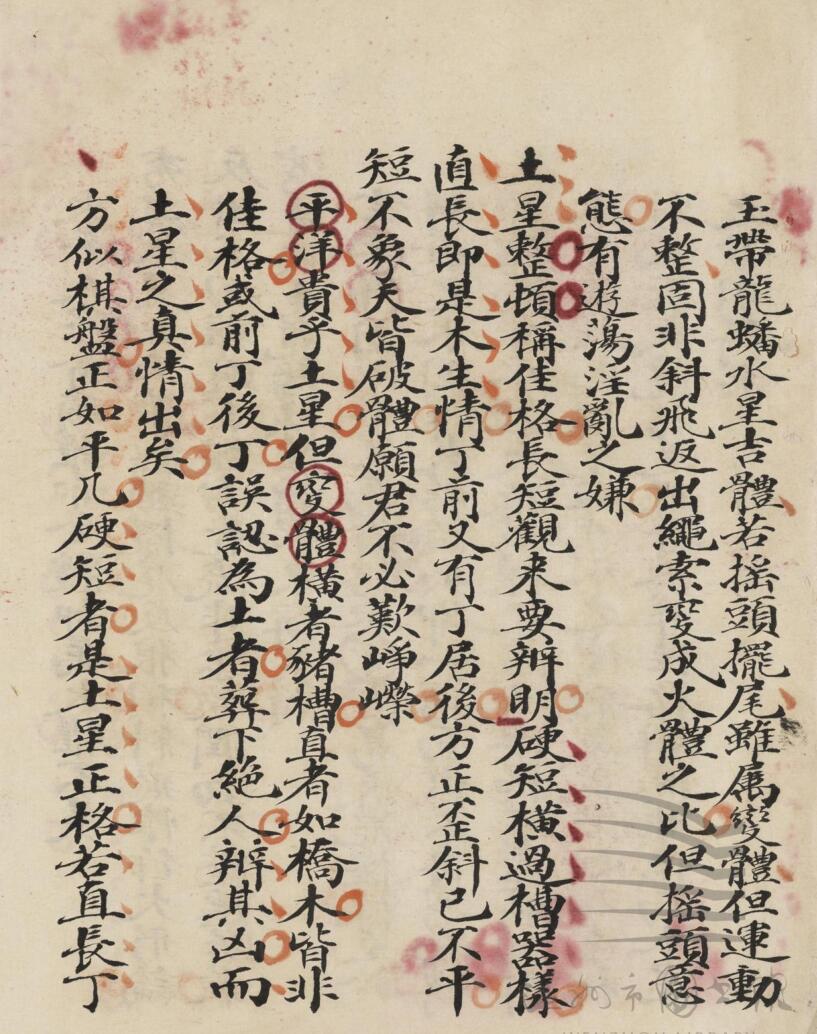 玉帶龍蟠水星吉體若摇頭擺尾雖属變體但運動
不整固非斜飛返出繩索变成火體之比但摇頭意
態有遊蕩淫亂之嫌
土星整頓稱佳格長短觀来要辨明硬短橫過槽器樣
直長即是木生情丁前又有丁居後方正歪斜已不平
短不象天皆破體願君不必歎崢嶸
平洋貴乎土星但变體橫者豬槽直者如橋木皆非
佳格或前丁後丁誤認為土者葬下絕人辨其凶而
土星之真情出矣
方似棋盤正如平几硬短者是土星正格若直長丁
州市